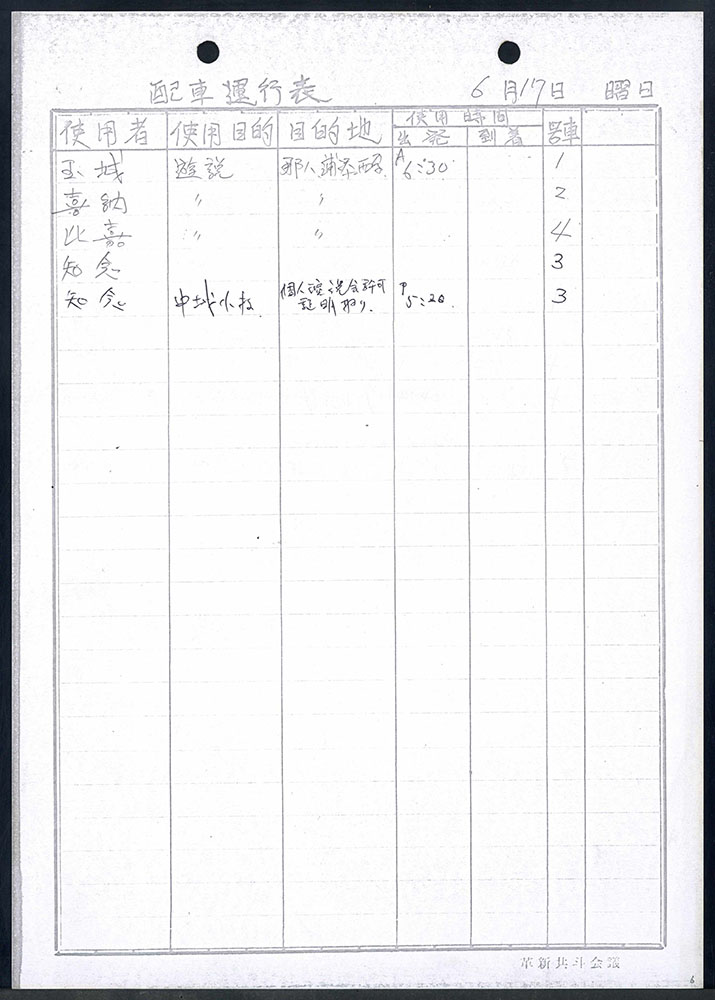 配車運行表 6月17日 曜日
使用者 使用目的 目的地 使用時間 出発 到着 車
玉城 遊説 A 6:30 1
喜納 〃 〃 2
比嘉 〃 〃 4
知念 3
知念 個人演説会許可 P 5:20 3
革新共斗会議
6